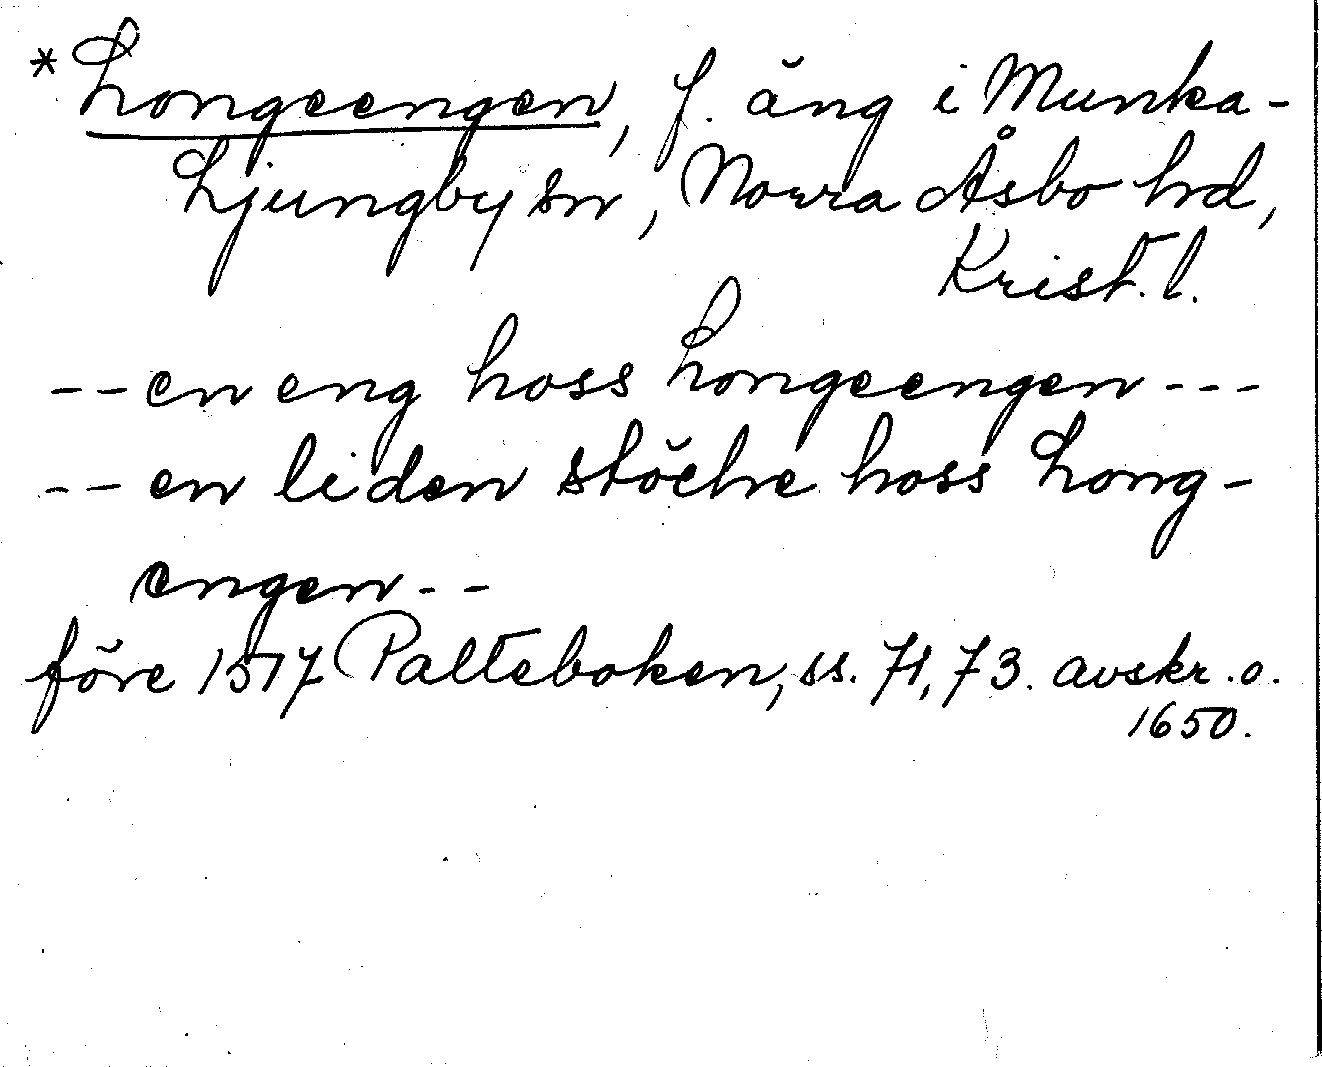 *Longeengen, f. äng i Munka-
Ljungby sn, Norra Åsbo hd,
Krist. l.
-- en eng hoss Longeengen ---
-- en liden stöche hoss Long-
engen --
före 1517 Palteboken, ss. 71, 73. avskr. o.
1650.